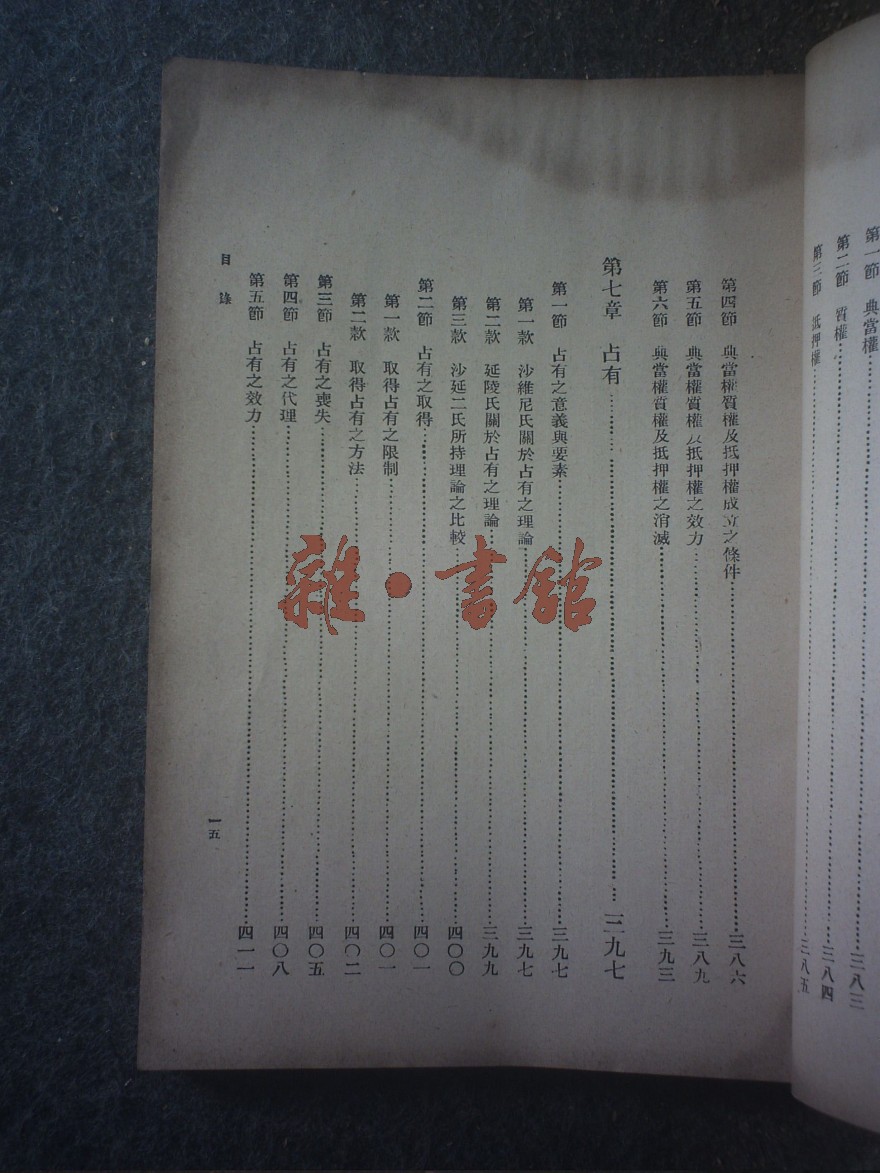 第一節　典當權………三八三
第二節　質權………三八四
第三節　抵押權………三八五
第四節　典當權質權及抵押權成立之條件………三八六
第五節　典當權質權及抵押權之效力………三八九
第六節　典當權質權及抵押權之消滅………三九三
第七章　占有………三九七
第一節　占有之意義與要素………三九七
第一款　沙維尼氏關於占有之理論………三九七
第二款　延陵氏關於占有之理論………三九九
第三款　沙延二氏所持理論之比較………四〇〇
第二節　占有之取得………四〇一
第一款　取得占有之限制………四〇一
第二款　取得占有之方法………四〇二
第三節　占有之喪失………四〇五
第四節　占有之代理………四〇八
第五節　占有之效力………四一一
目錄
一五
雜·書館